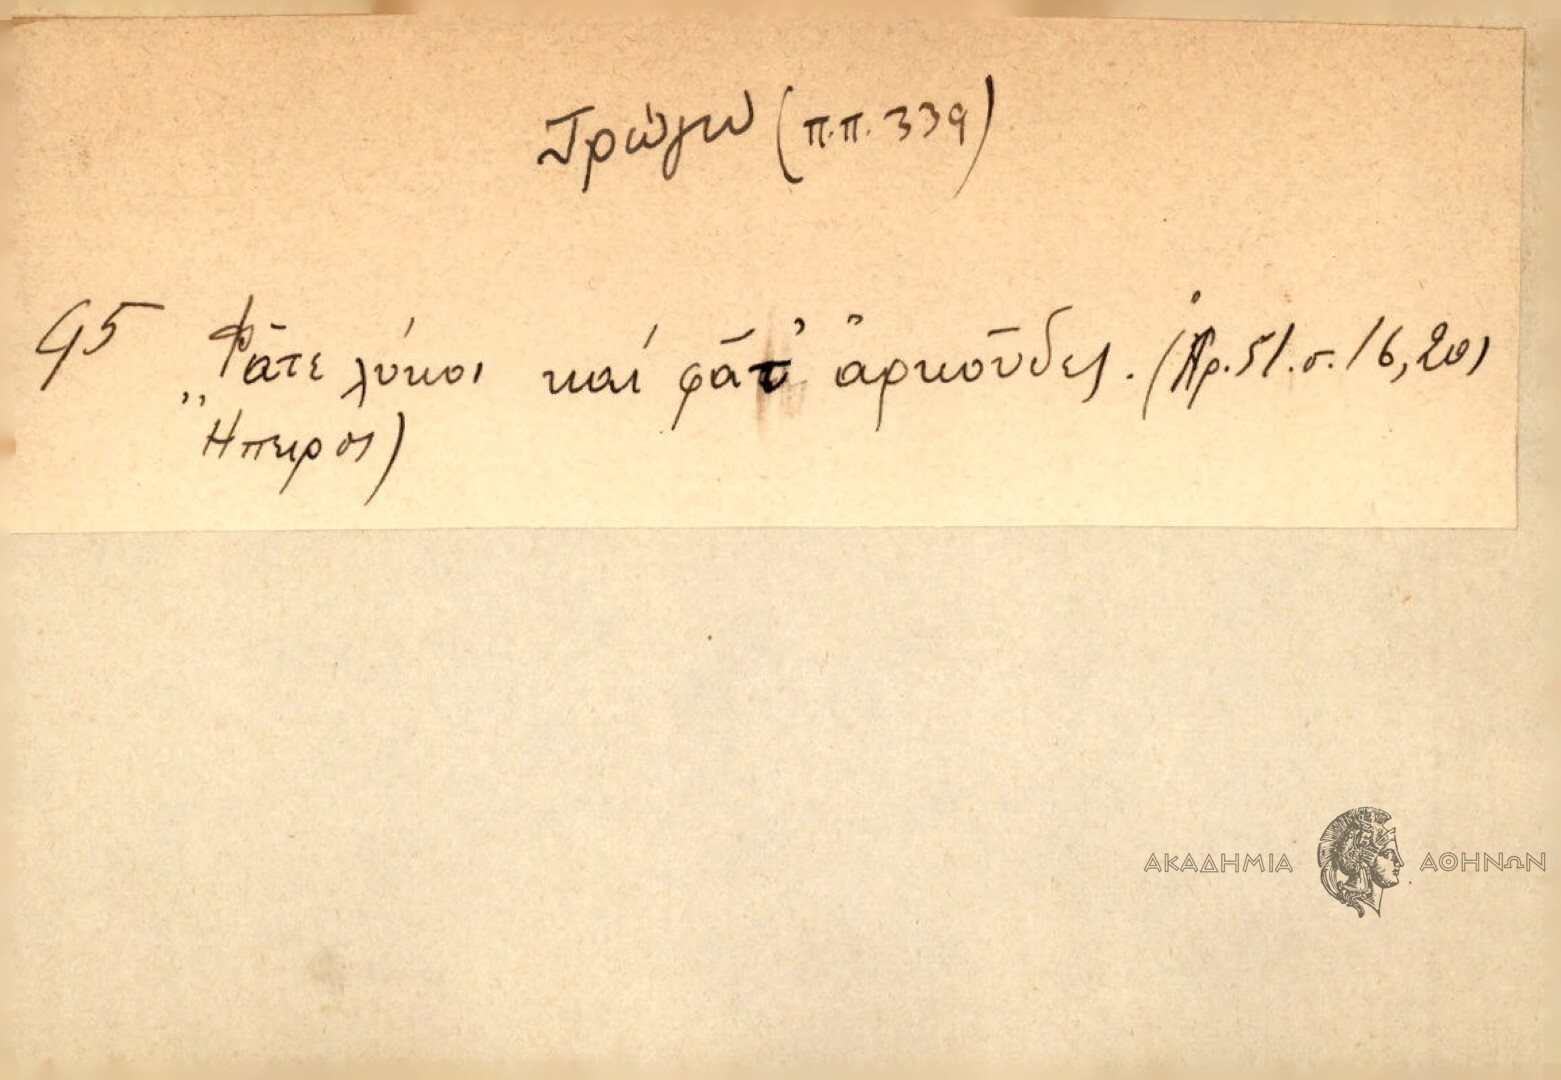 Τρώγω (π.π. 339)
95 Φᾶτε λύκοι καί φᾶτ' ἀρκοῦδες. (Ἀρ. 51. σ. 16, 201
Ἤπειρος)
ΑΚΑΔΗΜΙΑ ΑΘΗΝΩΝ